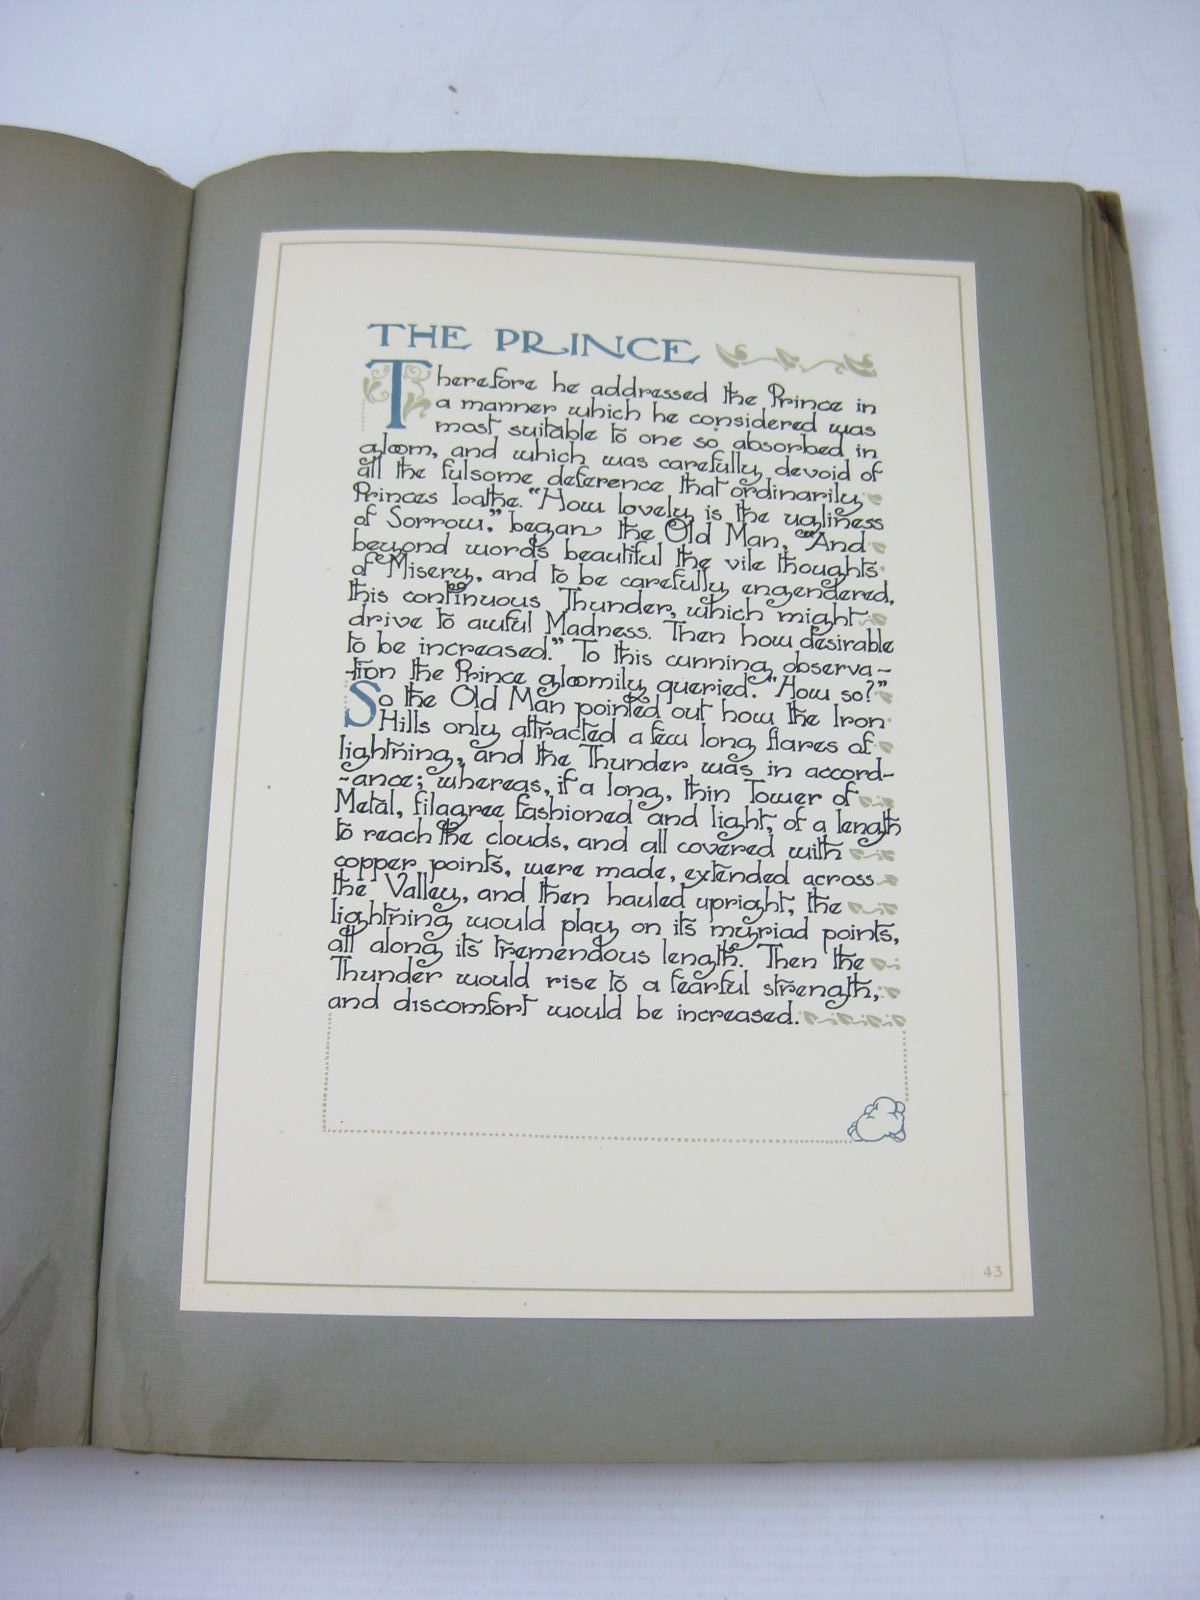 THE PRINCE
Therefore he addressed the Prince in
a manner which he considered was
most suitable to one so absorbed in
gloom, and which was carefully devoid of
all the fulsome deference that ordinarily
Princes loathe. "How lovely is the ugliness
of Sorrow," began the Old Man, "And
beyond words beautiful the vile thoughts
of Misery, and to be carefully engendered,
this continuous Thunder, which might
drive to awful Madness. Then how desirable
to be increased." To this cunning observa-
-tion the Prince gloomily queried. "How so?"
So the Old Man pointed out how the Iron
Hills only attracted a few long flares of
lightning, and the Thunder was in accord-
-ance; whereas, if a long, thin Tower of
Metal, filagree fashioned and light, of a length
to reach the clouds, and all covered with
copper points, were made, extended across
the Valley, and then hauled upright, the
lightning would play on its myriad points,
all along its tremendous length. Then the
Thunder would rise to a fearful strength,
and discomfort would be increased.
43